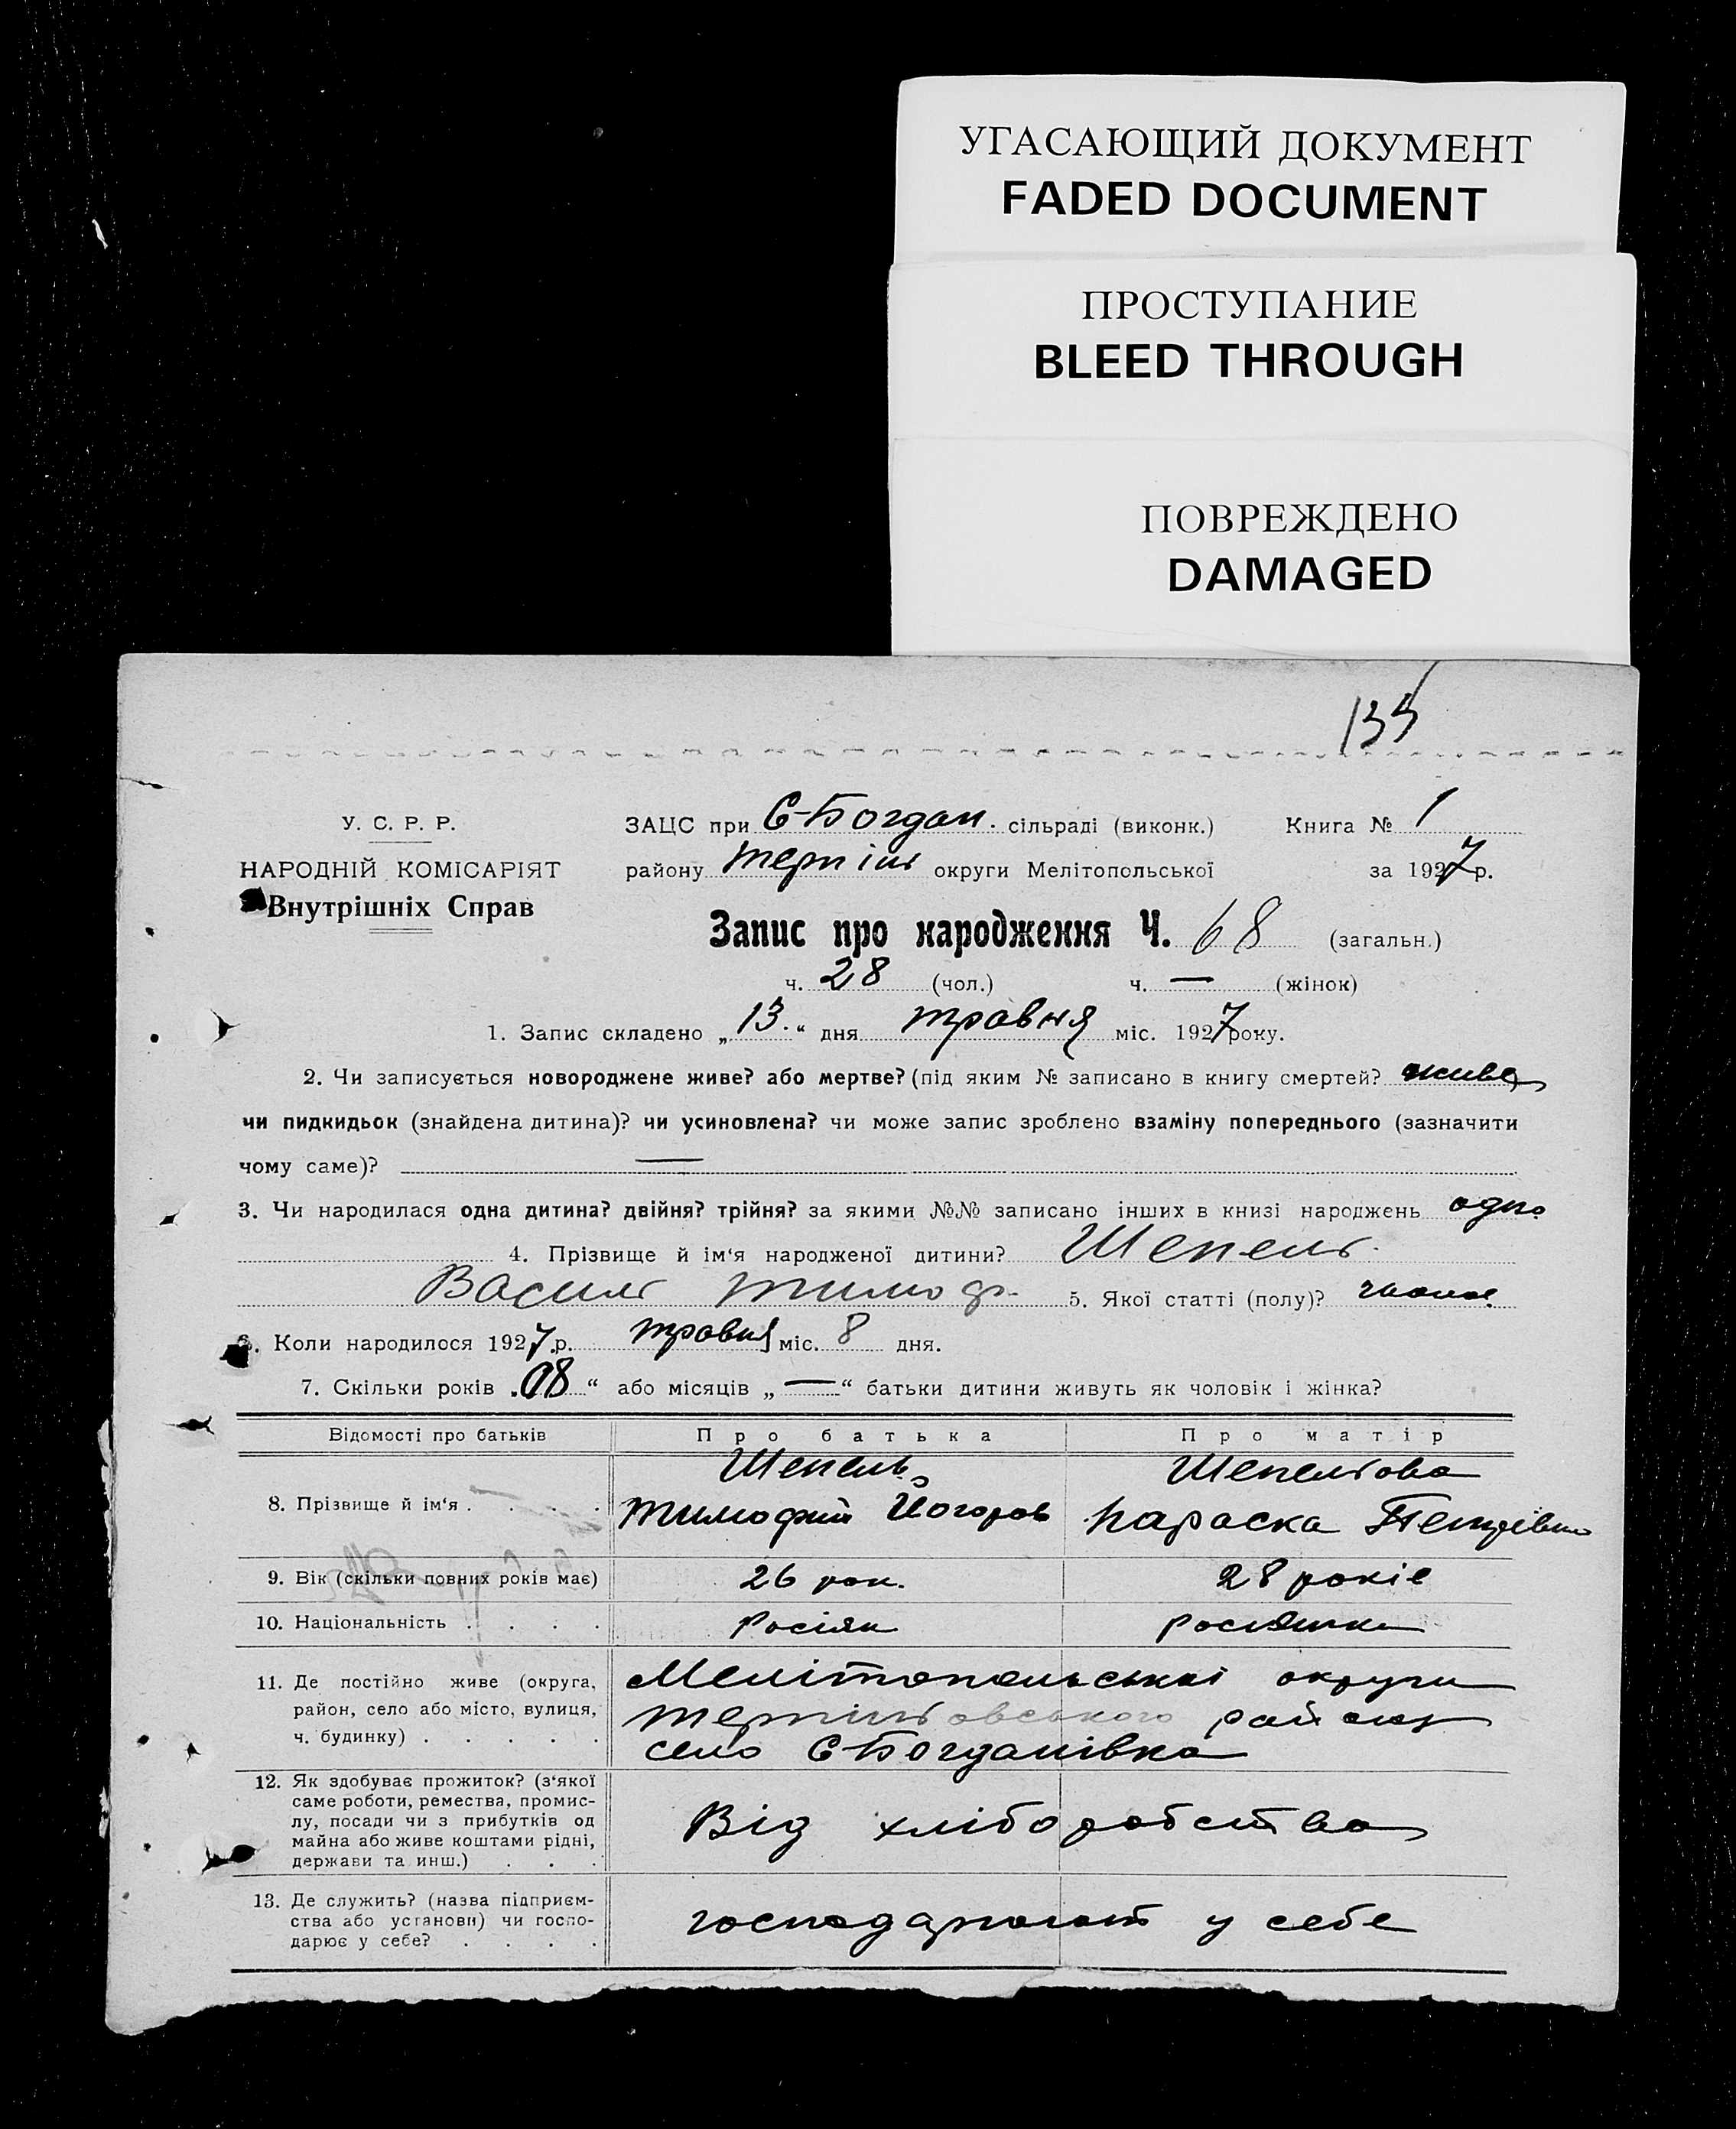 УГАСАЮЩИЙ ДОКУМЕНТ
FADED DOCUMENT
ПРОСТУПАНИЕ
BLEED THROUGH
ПОВРЕЖДЕНО
DAMAGED
135
У. С. Р. Р.
НАРОДНІЙ КОМІСАРІЯТ
Внутрішніх Справ
ЗАЦС при Є-Богдан. сільраді (виконк.) Книга № 1
району Терпін округи Мелітопольської за 1927 р.
Запис про народження Ч. 68 (загальн.)
ч. 28 (чол.) ч. — (жінок)
1. Запис складено „13“ дня травня міс. 1927 року.
2. Чи записується новороджене живе? або мертве? (під яким № записано в книгу смертей? живе
чи пидкидьок (знайдена дитина)? чи усиновлена? чи може запис зроблено взаміну попереднього (зазначити
чому саме)? —
3. Чи народилася одна дитина? двійня? трійня? за якими №№ записано інших в книзі народжень одно
4. Прізвище й ім‘я народженої дитини? Шепель
Василь Тимоф. 5. Якої статті (полу)?
6. Коли народилося 1927 р. травня міс. 8 дня.
7. Скільки років „08“ або місяців „—“ батьки дитини живуть як чоловік і жінка?
Відомості про батьків Про батька Про матір
8. Прізвище й ім‘я . . . . Шепель Шепельова
Тимофій Йогоров Параска Петрівна
9. Вік (скільки повних років має) 26 рок. 28 років
10. Національність . . . . Росіян росіянка
11. Де постійно живе (округа, район, село або місто, вулиця, ч. будинку) . . . . .
Мелітопольської округи
Терпіньовського району
село Є-Богданівка
12. Як здобуває прожиток? (з‘якої саме роботи, ремества, промислу, посади чи з прибутків од майна або живе коштами рідні, держави та инш.) . . .
Від хліборобства
13. Де служить? (назва підприємства або установи) чи господарює у себе? . . . .
господарюють у себе